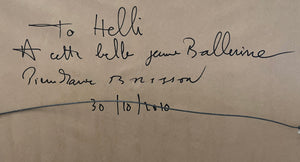 To Helli
A cette belle jeune Ballerine
Pierre Marie Brisson
30/10/2010